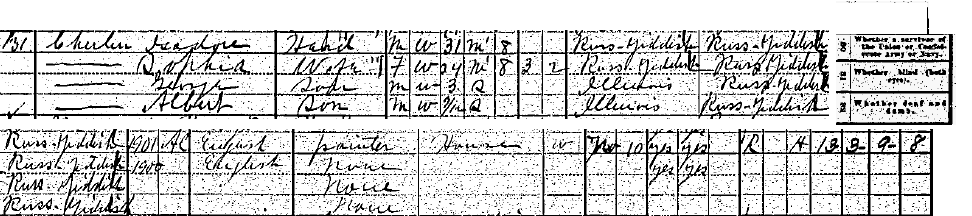 31 Cherlin Isadore Head M W 31 M 8 Russ-Yiddish Russ-Yiddish
Sophia Wife F W 24 M 8 3 2 Russ-Yiddish Russ Yiddish
Son M W 3 S Illinois Russ Yiddish
Albert Son M W S Illinois Russ-Yiddish
Whether a survivor of the Union or Confederate Army or Navy.
Whether blind (both eyes).
Whether deaf and dumb.
Russ-Yiddish 1901 English painter House W No 10 yes yes R H 13 3 9 8
Russ-Yiddish 1900 English None yes yes
Russ-Yiddish None
Russ-Yiddish None